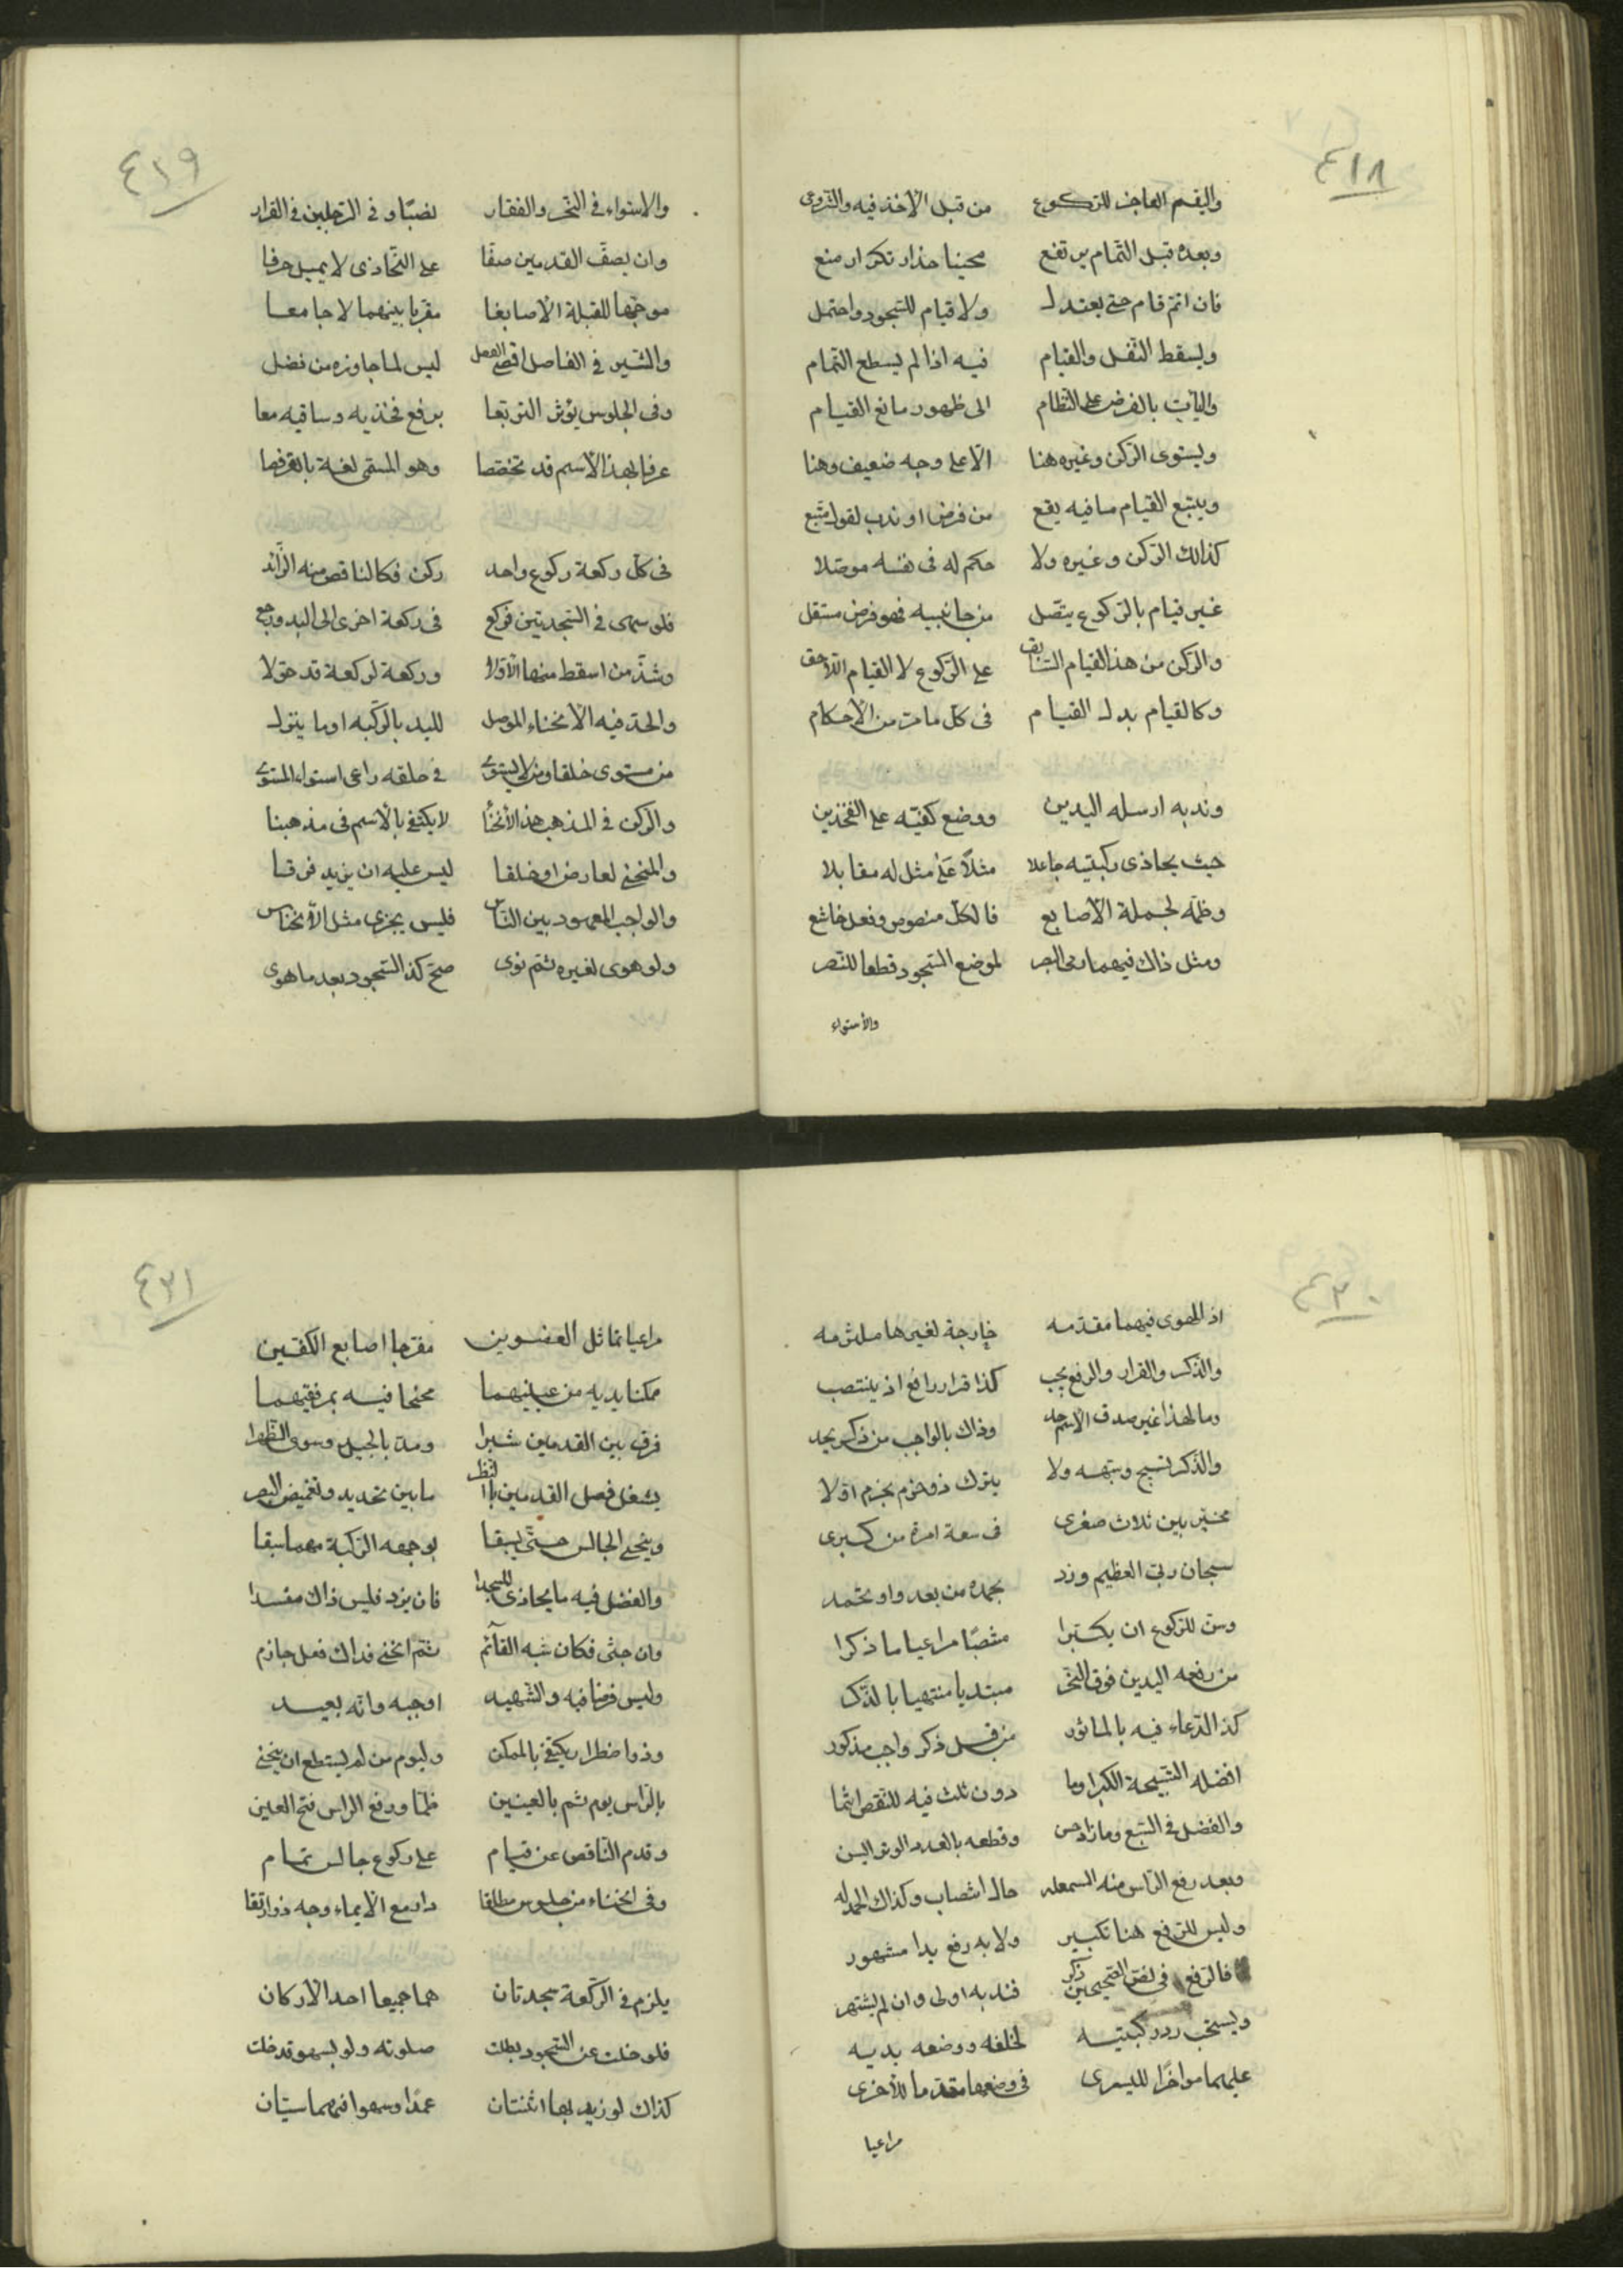 ٤١٨
وليقم العاجز للركوع من قبل الأخذ فيه والشروع
وبعده قبل التمام يرتفع محنيا حذار تكرار منع
فان اتم قام حتى يعتدل ولا قيام للسجود واحتمل
وليسقط الثقل والقيام فيه اذا لم يسطع التمام
وليأت بالفرض على النظام الى ظهور مانع القيام
وليستوى الركن وغيره هنا الا على وجه ضعيف وهنا
ويتبع القيام ما فيه يقع من فرض او ندب لقول متبع
كذلك الركن وغيره ولا حكم له فى نفسه موصلا
غير قيام بالركوع يتصل من جانبيه فهو فرض مستقل
والركن من هذا القيام السابق على الركوع لا القيام اللاحق
وكالقيام بدل القيام فى كل ما مر من الأحكام
وندبه ارساله اليدين ووضع كفيه على الفخذين
حيث يحاذى ركبتيه جاعلا مثلا على مثل له مقابلا
وضمه لجملة الأصابع فالكل منصوص وفعل خاشع
ومثل ذاك فيهما رمى البصر لموضع السجود قطعا للنصر
والأستواء
٤١٩
والاستواء فى النحر والفقار نصبا وفى الرجلين فى القرار
وان يصف القدمين صفا على التحاذى لا يميل حرفا
موجها للقبلة الأصابعا مقربا بينهما لا جامعا
والشبر فى الفاصل اقصى الفصل ليس لما جاوزه من فضل
وفى الجلوس يؤثر التربعا برفع فخذيه وساقيه معا
عرفا بهذا الأسم قد تخصصا وهو المسمى لغة بالقرفصا
فى كل ركعة ركوع واحد ركن فكالناقص منه الزائد
فلو سهى فى السجدتين فركع فى ركعة اخرى الى البدء رجع
وشذ من اسقط منها الأولا وركعة لركعة قد حولا
والحد فيه الانحناء الموصل لليد بالركبة او ما ينزل
من مستوى خلقا ومن لا يستوى فى خلقه راعى استواء المستوى
والركن فى المذهب هذا الانحنا لا يكتفى بالأسم فى مذهبنا
والمنحنى لعارض او خلقا ليس عليه ان يزيد فرقا
والواجب المعهود بين الناس فليس يجزى مثل الانخناس
ولو هوى لغيره ثم نوى صح كذا السجود بعد ما هوى
٤٢٠
اذ الهوى فيهما مقدمه خارجة لغيرها ملتزمه
والذكر والقرار والرفع يجب كذا قرار رافع اذ ينتصب
وما لهذا غير صدق الاسم حد وذاك بالواجب من ذكر يحد
والذكر تسبيح وشبهه ولا يترك ذو حزم بحزم اولا
مخير بين ثلاث صغرى فى سعة او مرة من كبرى
سبحان ربى العظيم وزد بحمده من بعد واو تحمد
وسن للركوع ان يكبرا منتصبا مراعيا ما ذكرا
من رفعه اليدين فوق النحر مبتديا منتهيا بالذكر
كذا الدعاء فيه بالمأثور من قبل ذكر واجب مذكور
افضله التسبيحة الكبرا وما دون ثلث فيه للنقص انتما
والفضل فى السبع وما زاد حسن وقطعه بالعدد الوتر السن
وبعد رفع الرأس منه السمعله حال انتصاب وكذاك الحمدله
وليس للرفع هنا تكبير ولا به رفع يدا مشهور
فالرفع فى لفظ الصحيحين ذكر فندبه اولى وان لم يشتهر
ويستحب رد ركبتيه لخلفه ووضعه يديه
عليهما مؤخرا لليسرى فى وضعها مقدما للأخرى
مراعيا
٤٢١
مراعيا تماثل العضوين مفرجا اصابع الكفين
ممكنا يديه من عينيهما مجنحا فيه بمرفقيهما
فرق بين القدمين شبرا ومد بالجيد وسوى الظهرا
يشغل فصل القدمين بالنظر ما بين تحديد وتغميض البصر
وينحنى الجالس حتى يسبقا بوجهه الركبة مهما سبقا
والفضل فيه ما يحاذى المسجدا فان يزد فليس ذاك مفسدا
وان جثى فكان شبه القائم ثم انحنى فذاك فعل جازم
وليس فرضا فيه والشهيد اوجبه وانه بعيد
وذو اضطرار يكتفى بالممكن وليوم من لم يستطع ان ينحنى
بالرأس يوم ثم بالعينين غمضا ورفع الراس فتح العين
وقدم الناقص عن قيام على ركوع جالس تمام
وفى انحناء من جلوس مطلقا دار مع الايماء وجه ذو ارتقا
يلزم فى الركعة سجدتان هما جميعا احد الأركان
فلو خلت عن السجود بطلت صلوته ولو بسهو قد خلت
كذاك لو زيد بها اثنتان عمدا وسهوا فيهما سيّان